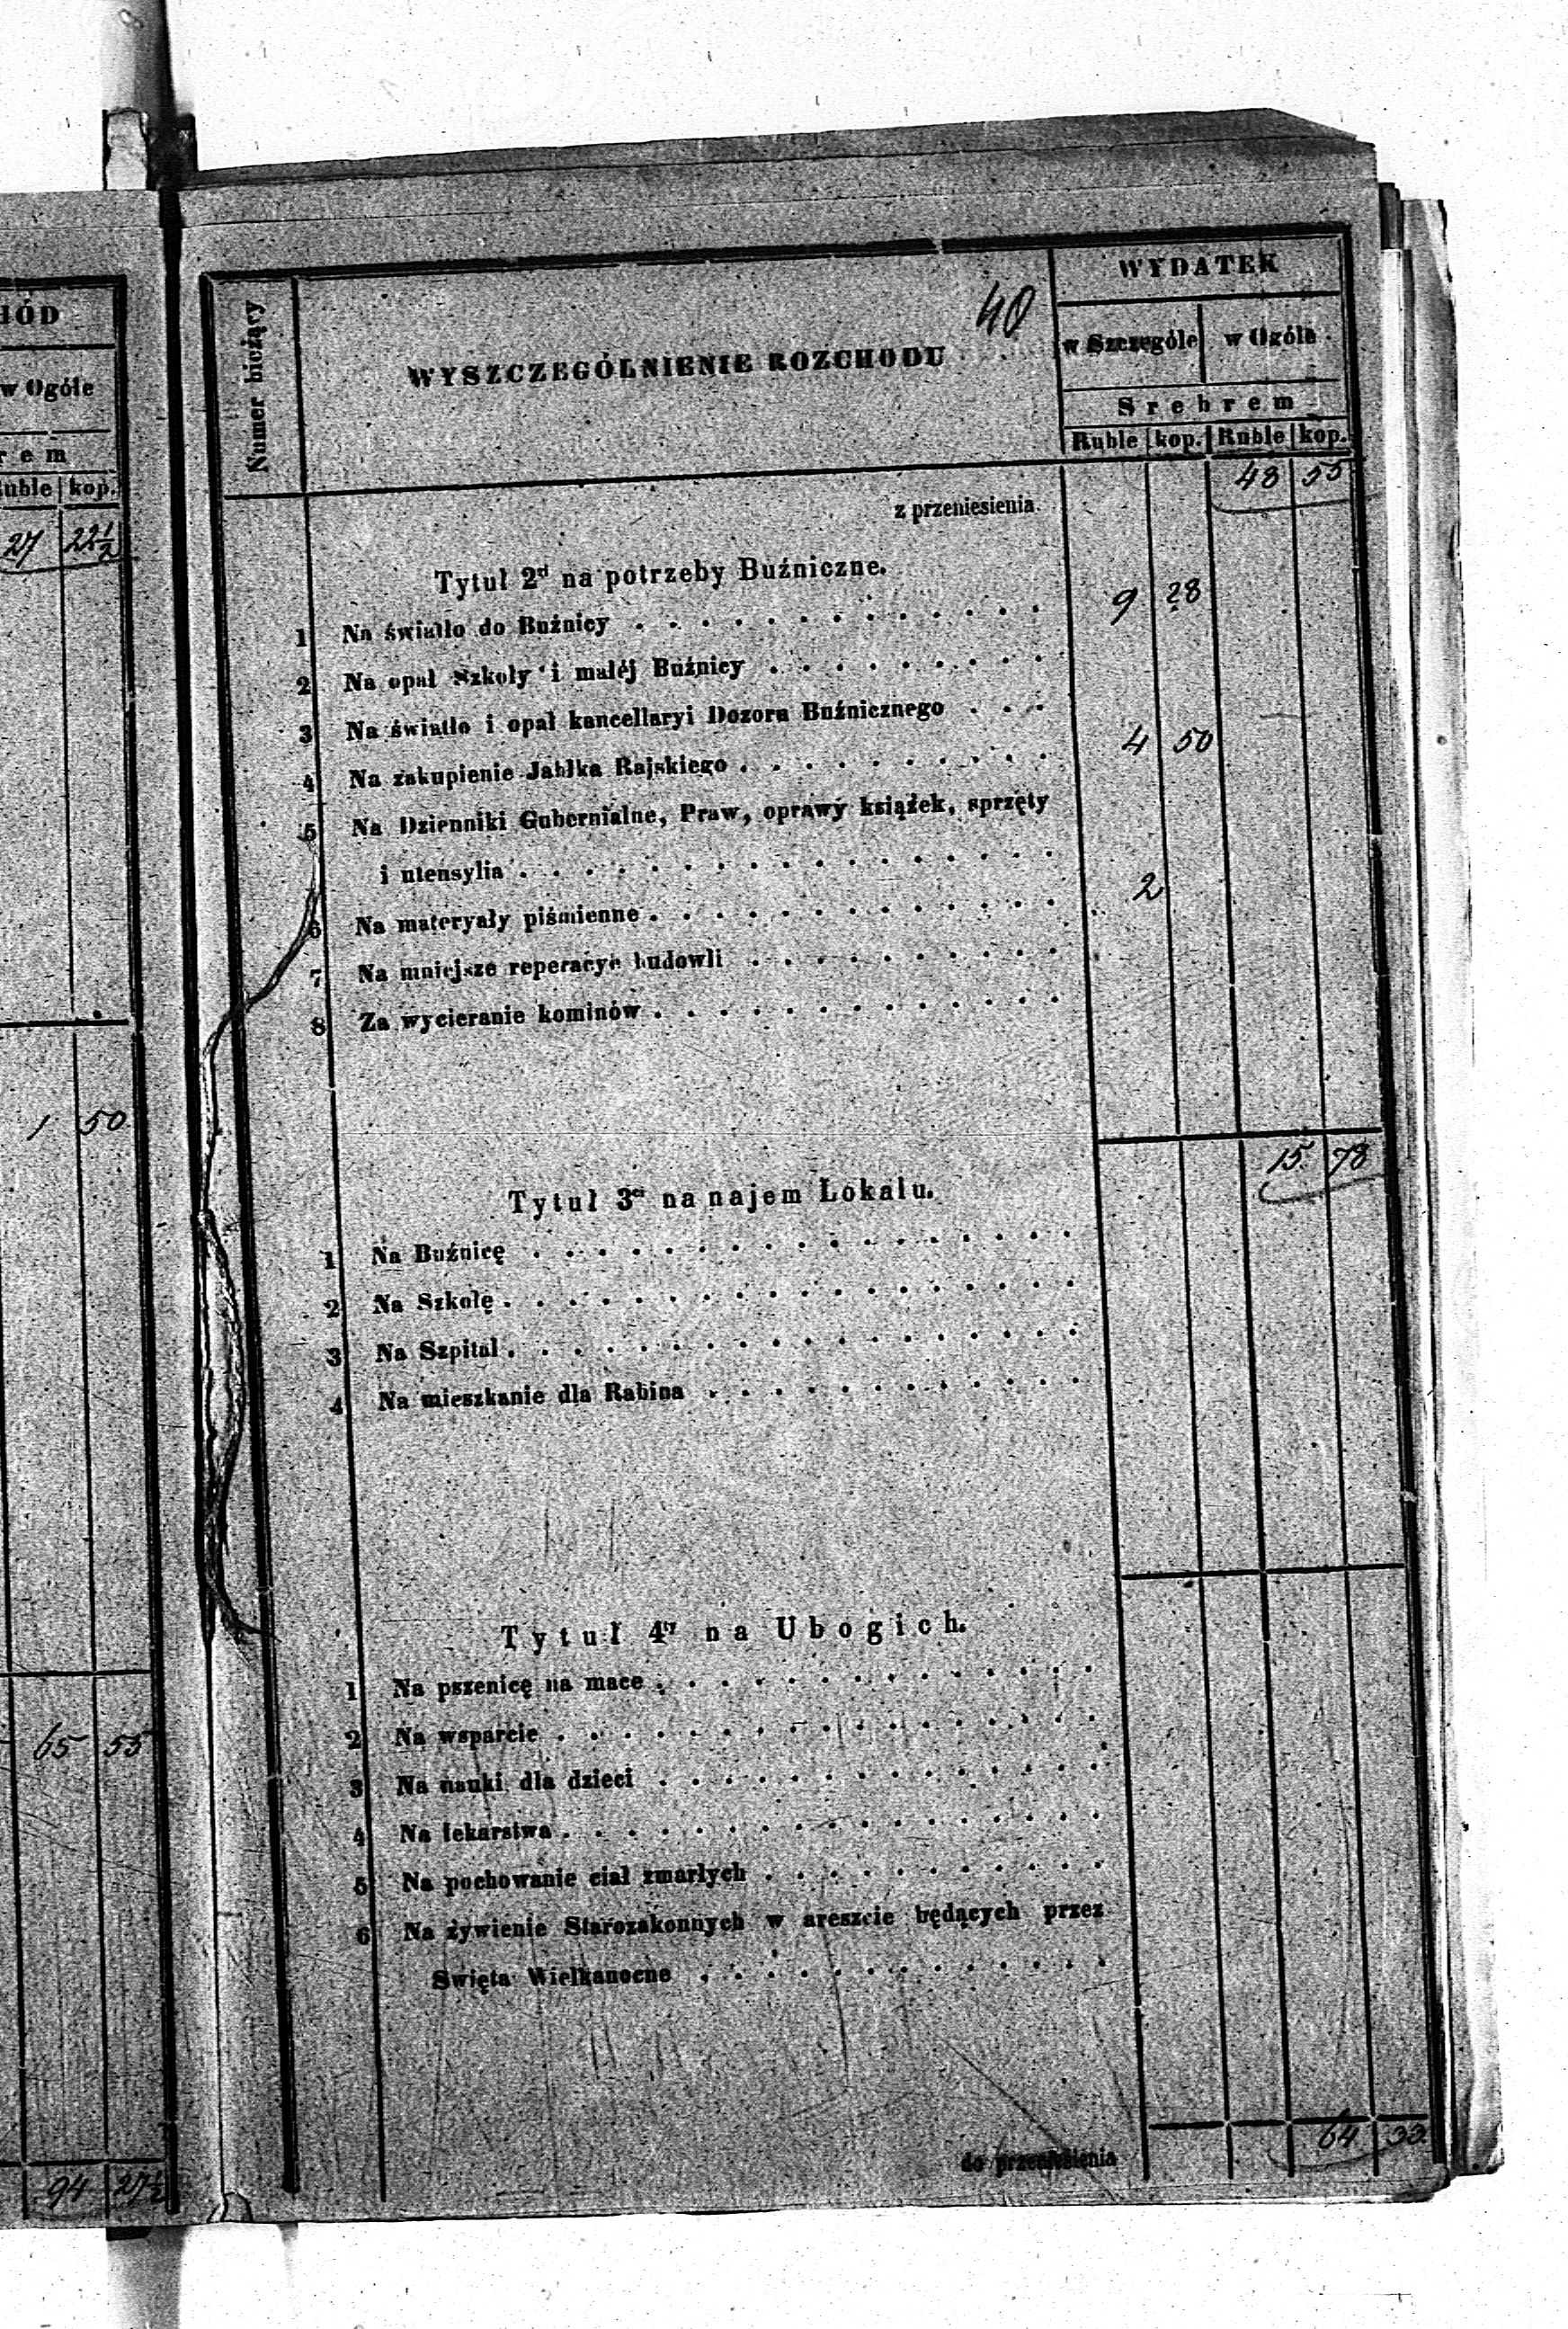 HÓD
w Ogóle
r e m
Ruble kop.
27 22½
1 50
65 55
94 27½
40
Numer bieżący
WYSZCZEGÓLNIENIE ROZCHODU
WYDATEK
w Szczególe w Ogóle
Srebrem
Ruble kop. Ruble kop.
z przeniesienia. 48 55
Tytuł 2d na potrzeby Buźniczne.
1 Na światło do Buźnicy 9 28
2 Na opał Szkoły i małéj Buźnicy
3 Na światło i opał kancellaryi Dozoru Buźnicznego
4 Na zakupienie Jabłka Rajskiego 4 50
5 Na Dzienniki Gubernialne, Praw, oprawy książek, sprzęty
i utensylia
6 Na materyały piśmienne 2
7 Na mniejsze reperacye budowli
8 Za wycieranie kominów
15 78
Tytuł 3ci na najem Lokalu.
1 Na Buźnicę
2 Na Szkołę
3 Na Szpital
4 Na mieszkanie dla Rabina
Tytuł 4ty na Ubogich.
1 Na pszenicę na mace
2 Na wsparcie
3 Na nauki dla dzieci
4 Na lekarstwa
5 Na pochowanie ciał zmarłych
6 Na żywienie Starozakonnych w areszcie będących przez
Swięta Wielkanocne
do przeniesienia 64 33